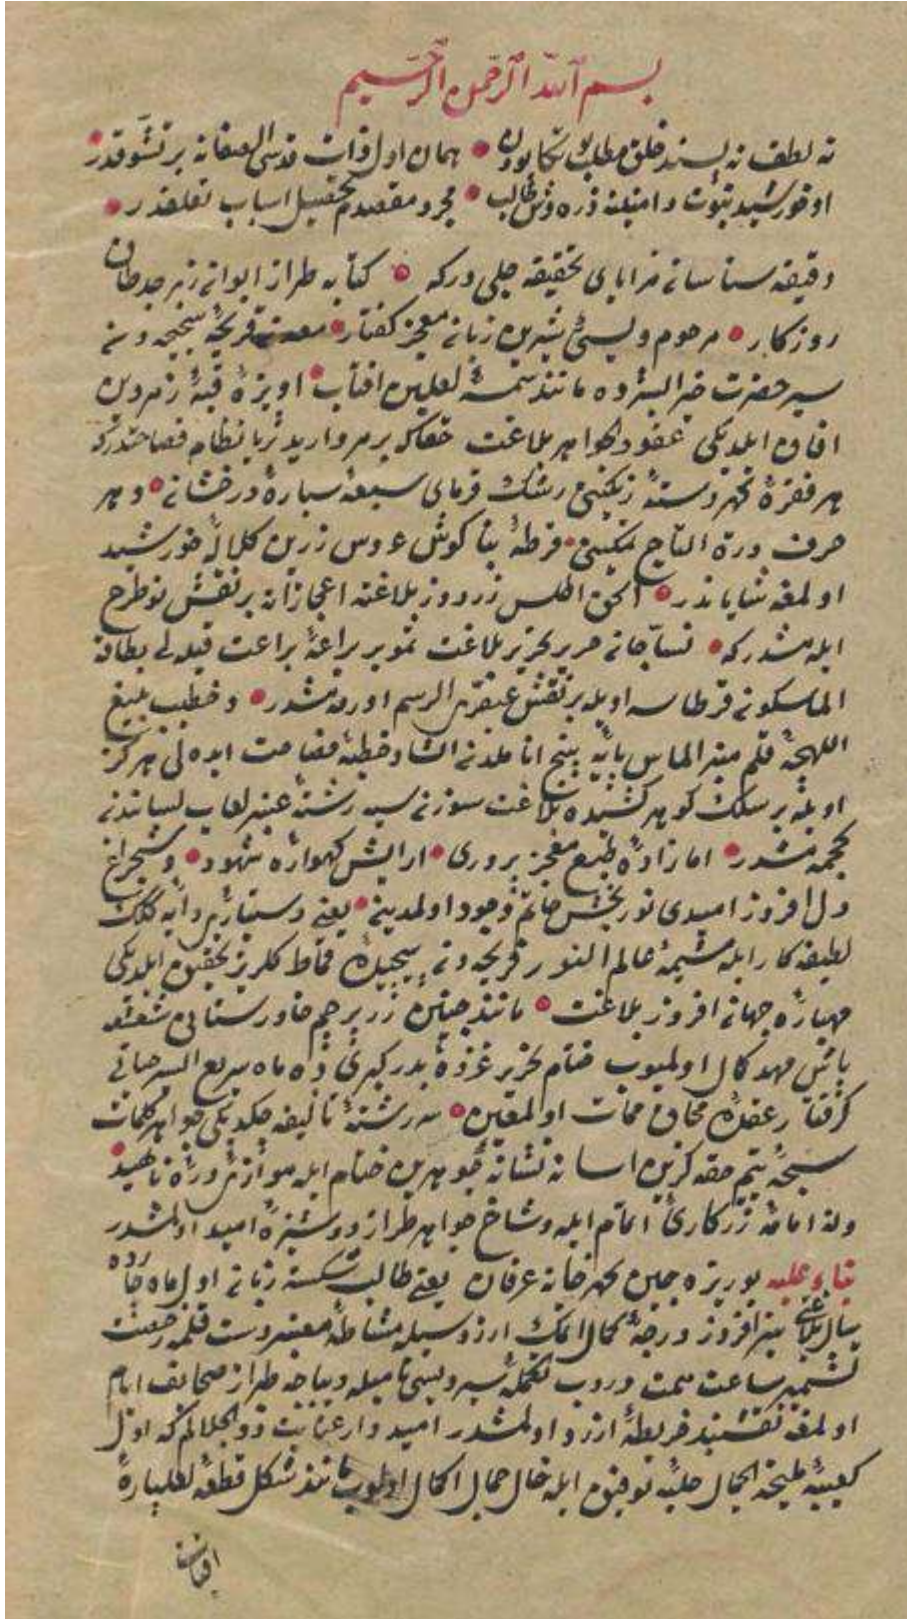 بسم الله الرحمن الرحيم
نه لطف نه پسند خلق مطلب بو تكاپودن همان اول ذات قدسى الصفاته بر تشوقدر
او خورشيد نبوت دامننه ذره وش طالب مجرد مقصدم تحصيل اسباب تعلقدر
دقيقه سناسان مزاياى تحقيقه جلى دركه كتابه طراز ايوان زبرجد طاق
روزكار مرحوم ويسئ شيرين زبان معجز كفتار معدن قريحۀ سنجيده دن
سير حضرت خير البشرده مانند شمسۀ لعلين افتاب اويزۀ قبۀ زمردين
افاق ايلديكى عقود جواهر بلاغت حقاكه بر مرواريد ثريا نظام فصاحتدركه
هر فقرۀ كهر دستۀ رنكينى رشك فرماى سبعۀ سيارۀ درخشان و هر
حرف درة التاج نمكينى قرطۀ بناكوش عروس زرين كلالۀ خورشيد
اولمغه شاياندر الحق اطلس زردوز بلاغته اعجازانه بر نقش نو طرح
ايلمشدركه نساجان حرير تحرير بلاغت تموير يراعۀ براعت قيله لى بطانۀ
الماسكون قرطاسه اويله بر نقش عبقرى الرسم اورمامشدر و خطيب بليغ
اللهجۀ قلم منبر الماس پايۀ پنج اناملدن انشاد خطبۀ فصاحت ايده لى هركز
اويله بر سلك كوهر كشيدۀ بلاغت سوزن سررشتۀ عنبر لعاب لساندن
كچمامشدر اما زادۀ طبع معجز پرورى ارايش كهوارۀ شهود و شبچراغ
دل افروز اميدى نور بخش خاتم وجود اولمدين يعنى دستيارئ دايۀ كلك
لطيفه كار ايله مشيمۀ عالم النور قريحه دن پيچيدۀ قماط كلريز تحقيق ايلديكى
مهپارۀ جهان افروز بلاغت مانند جنين زرپرچم خاورستان شفقده
ياتش مهد كمال اولميوب ختام تحرير غزوۀ بدر كبرئ ده ماه سريع السير حياتى
كرفتار عقدۀ محاق ممات اولمغين سررشتۀ تأليفه چكديكى جواهر كلمات
سبحۀ يتيم حقه كزين اسا نه نشانۀ جوهرين ختام ايله موازئ درۀ ناهيد
و نه امامۀ زركارئ اتمام ايله وشاخ جواهر طراز دوشيزۀ اميد اولمشدر
بناء عليه بو ريزه چين كهر خانۀ عرفان يعنى طالب شكسته زبان اول ماه چارده
سال بلاغتى بزم افروز درجۀ كمال ايتمك ارزوسيله مشاطۀ معنبر دست قلمه رخصت
تشمير ساعت همت ويروب تكملۀ سير ويسى ناميله ديباجه طراز صحايف ايام
اولمغه نقشبند خريطۀ ارزو اولمشدر اميدوار عنايت ذو الجلالم كه اول
كعبۀ مليحة الجمال حليۀ توفيق ايله خال جمال اكمال اولوب مانند شكل قطعۀ لعلپارۀ
افتاب